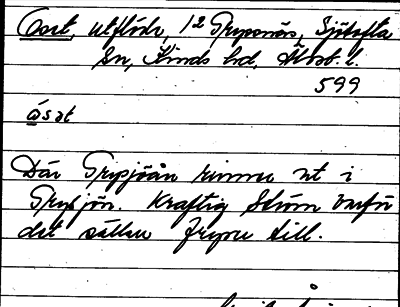 Oset, utflöde, 1² Grysnäs, Sjötofta
Sn, Kinds hd, Älvsb. l.
599
ósət
Där Grysjöån rinner ut i
Grysjön. Kraftig Ström varför
det sällan fryser till.